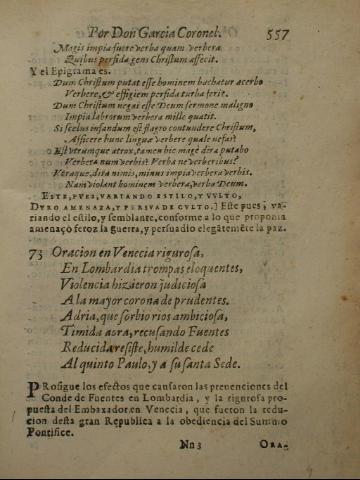 Por Don Garcia Coronel. 557
Magis impia fuere verba quam verbera
Quibus perfida gens Christum affecit.
Y el Epigrama es.
Dum Christum putat esse hominem bachatur acerbo
Verbere, & effigiem perfida turba ferit.
Dum Christum negat esse Deum sermone maligno
Impia labrorum verbera mille quatit.
Si scelus infandum est flagro contundere Christum,
Afficere hunc linguæ verbere quale nefas?
Est utrumque atrox, tamen hic magè dira putabo
Verbera num verbis? Verba ne verberibus?
Utraque, dira nimis, minus impia verbera verbis.
Nam violant hominem verbera, verba Deum.
ESTE, PUES, VARIANDO ESTILO, Y VULTO,
DURO AMENAZA, Y PERSUADE CULTO.] Este pues, va-
riando el estilo, y semblante, conforme a lo que proponia
amenaçò feroz la guerra, y persuadio elegãtemẽte la paz.
73 Oracion en Venecia rigurosa,
En Lombardia trompas eloquentes,
Violencia hizieron judiciosa
A la mayor corona de prudentes.
Adria, que sorbio rios ambiciosa,
Timida aora, recusando Fuentes
Reducida resiste, humilde cede
Al quinto Paulo, y a su santa Sede.
PRosigue los efectos que causaron las preuenciones del
Conde de Fuentes en Lombardia, y la rigurosa pro-
puesta del Embaxador en Venecia, que fueron la redu-
cion desta gran Republica a la obediencia del Summo
Pontifice.
Nn 3 ORA-